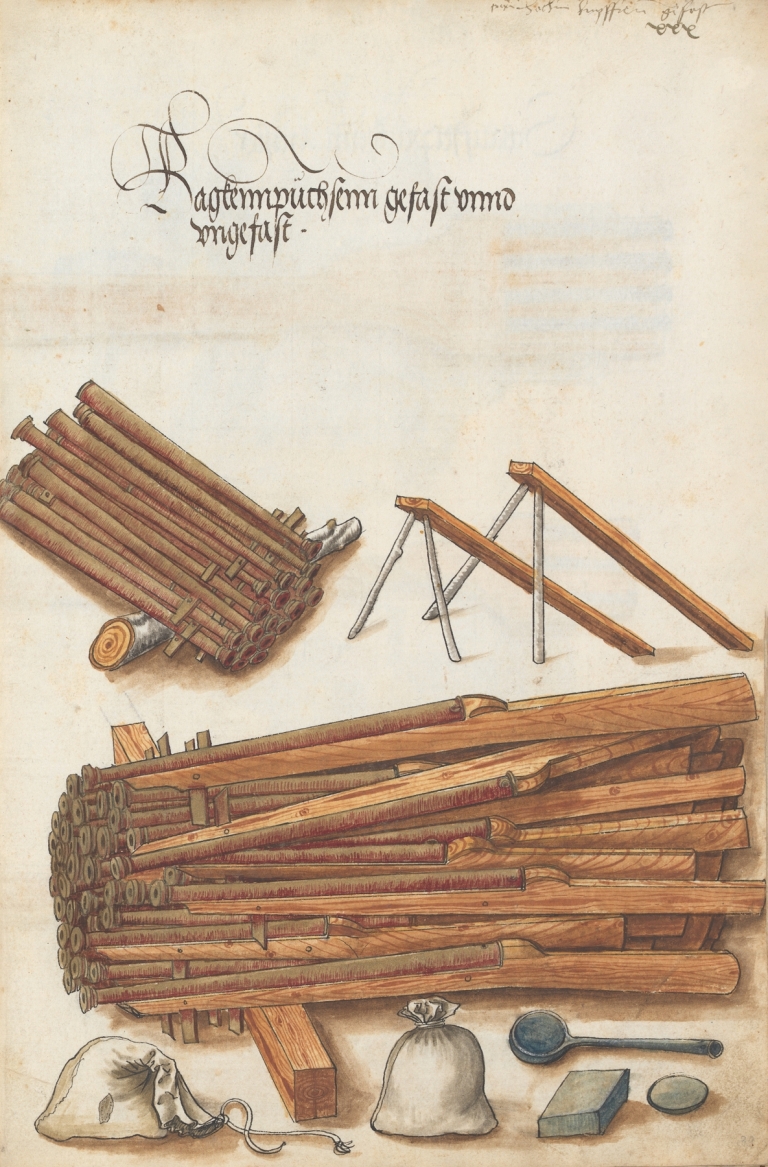 gefast
xxx
Hagkennpüchsenn gefast vnnd
vngefast .